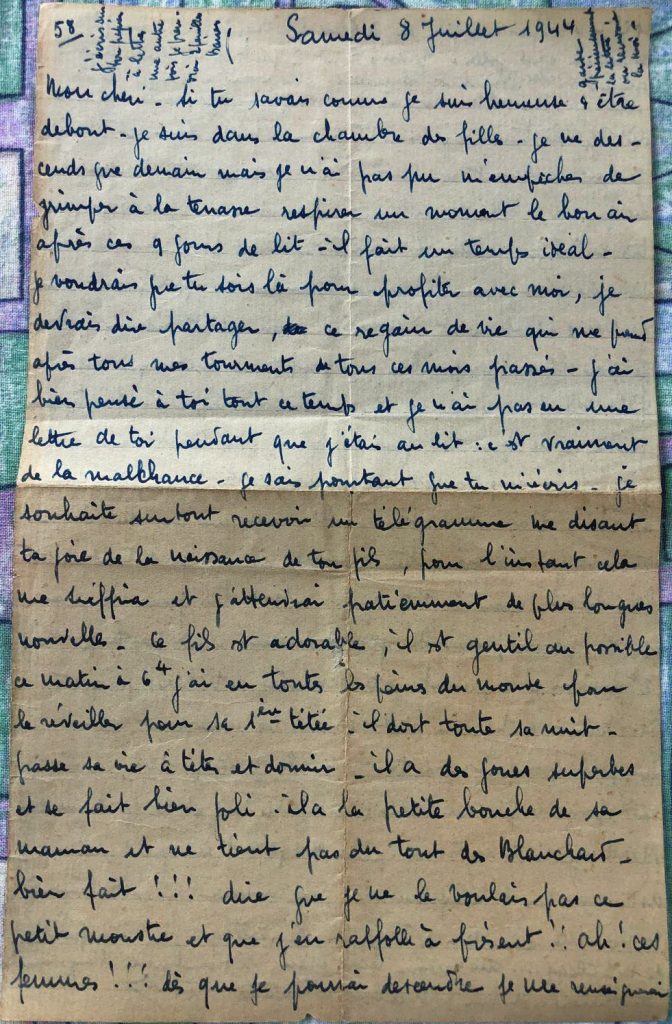 58
Samedi 8 Juillet 1944
Mon chéri - si tu savais comme je suis heureuse d être
debout - je suis dans la chambre des filles - je ne des-
cends que demain mais je n'ai pas pu m'empêcher de
grimper à la terrasse respirer un moment le bon air
après ces 9 jours de lit - il fait un temps idéal -
je voudrais que tu sois là pour profiter avec moi, je
devrais dire partager, ce regain de vie qui me prend
après tous mes tourments de tous ces mois passés - j'ai
bien pensé à toi tout ce temps et je n'ai pas eu une
lettre de toi pendant que j'étais au lit : c'est vraiment
de la malchance - je sais pourtant que tu m'écris - je
souhaite surtout recevoir un télégramme me disant
ta joie de la naissance de ton fils, pour l'instant cela
me suffira et j'attendrai patiemment de plus longues
nouvelles - Ce fils est adorable, il est gentil au possible
ce matin à 6 h j'ai eu toutes les peines du monde pour
le réveiller pour sa 1ère tétée - il dort toute sa nuit -
passe sa vie à téter et dormir - il a des joues superbes
et se fait bien joli - il a la petite bouche de sa
maman et ne tient pas du tout des Blanchard -
bien fait !!! dire que je ne le voulais pas ce
petit monstre et que j'en raffolle à présent !! ah ! ces
femmes !!! dès que je pourrai descendre je me